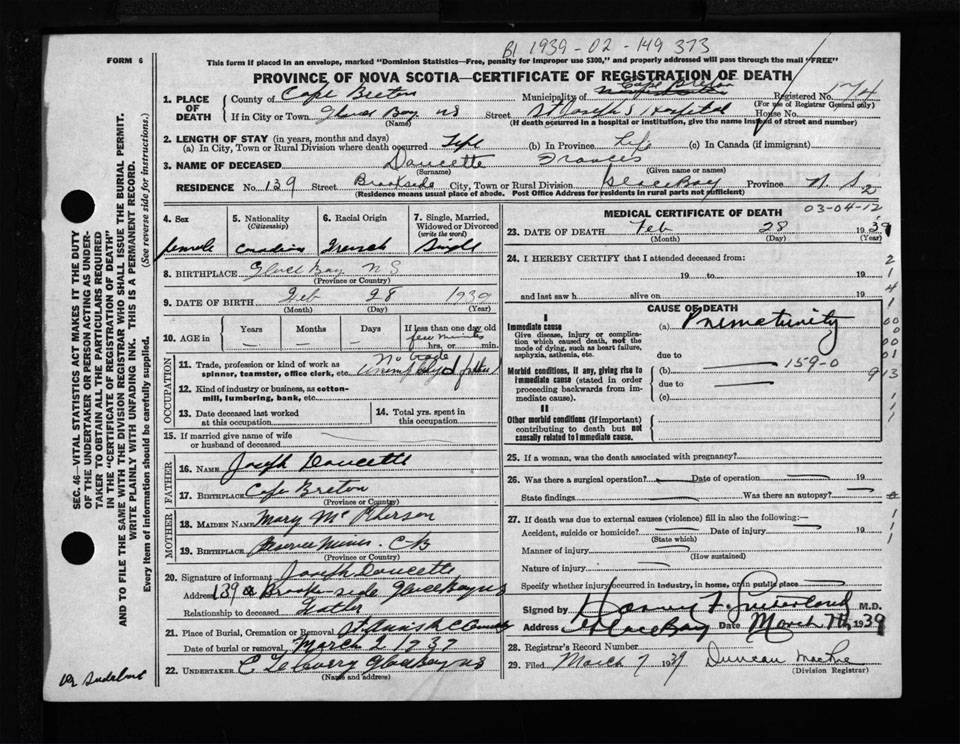 B1 1939-02-149373
FORM 6
This form if placed in an envelope, marked "Dominion Statistics—Free, penalty for improper use $300," and properly addressed will pass through the mail "FREE"
PROVINCE OF NOVA SCOTIA—CERTIFICATE OF REGISTRATION OF DEATH
1. PLACE OF DEATH
County of Cape Breton Municipality of Cape Breton Registered No. 74
(For use of Registrar General only)
If in City or Town Glace Bay NS Street St Joseph's Hospital House No.
(Name) (If death occurred in a hospital or institution, give the name instead of street and number)
2. LENGTH OF STAY (in years, months and days)
(a) In City, Town or Rural Division where death occurred Life (b) In Province Life (c) In Canada (if immigrant)
3. NAME OF DECEASED Doucette Frances
(Surname) (Given name or names)
RESIDENCE No. 139 Street Brookside City, Town or Rural Division Glace Bay Province N.S.
(Residence means usual place of abode. Post Office Address for residents in rural parts not sufficient)
4. Sex
female
5. Nationality (Citizenship)
Canadian
6. Racial Origin
French
7. Single, Married, Widowed or Divorced (write the word)
Single
8. BIRTHPLACE Glace Bay NS
(Province or Country)
9. DATE OF BIRTH Feb 28 1939
(Month) (Day) (Year)
10. AGE in Years Months Days If less than one day old
few minutes
hrs. or min.
OCCUPATION
11. Trade, profession or kind of work as spinner, teamster, office clerk, etc. No trade
12. Kind of industry or business, as cotton-mill, lumbering, bank, etc.
13. Date deceased last worked at this occupation
14. Total yrs. spent in this occupation
15. If married give name of wife or husband of deceased
FATHER
16. NAME Joseph Doucette
17. BIRTHPLACE Cape Breton
(Province or Country)
MOTHER
18. MAIDEN NAME Mary McPherson
19. BIRTHPLACE Reserve Mines C-B
(Province or Country)
20. Signature of informant Joseph Doucette
Address 139 Brook-side Glace Bay NS
Relationship to deceased Father
21. Place of Burial, Cremation or Removal St Anns
Date of burial or removal March 2 1939
22. UNDERTAKER Glace Bay NS
(Name and address)
MEDICAL CERTIFICATE OF DEATH
03-04-12
23. DATE OF DEATH Feb 28 1939
(Month) (Day) (Year)
24. I HEREBY CERTIFY that I attended deceased from:
19 to 19
and last saw h alive on 19
CAUSE OF DEATH
I
Immediate cause
Give disease, injury or complication which caused death, not the mode of dying, such as heart failure, asphyxia, asthenia, etc.
(a) Prematurity
due to
Morbid conditions, if any, giving rise to immediate cause (stated in order proceeding backwards from immediate cause).
(b) 159-0
due to
(c)
II
Other morbid conditions (if important) contributing to death but not causally related to immediate cause.
25. If a woman, was the death associated with pregnancy?
26. Was there a surgical operation? Date of operation 19
State findings Was there an autopsy?
27. If death was due to external causes (violence) fill in also the following:—
Accident, suicide or homicide? Date of injury 19
(State which)
Manner of injury
(How sustained)
Nature of injury
Specify whether injury occurred in industry, in home, or in public place
Signed by M.D.
Address Glace Bay Date March 7th 1939
28. Registrar's Record Number
29. Filed March 7 1939 Duncan MacRae
(Division Registrar)
SEC. 46—VITAL STATISTICS ACT MAKES IT THE DUTY OF THE UNDERTAKER OR PERSON ACTING AS UNDERTAKER TO OBTAIN ALL THE PARTICULARS REQUIRED IN THE "CERTIFICATE OF REGISTRATION OF DEATH" AND TO FILE THE SAME WITH THE DIVISION REGISTRAR WHO SHALL ISSUE THE BURIAL PERMIT.
WRITE PLAINLY WITH UNFADING INK. THIS IS A PERMANENT RECORD.
Every item of information should be carefully supplied. (See reverse side for instructions.)